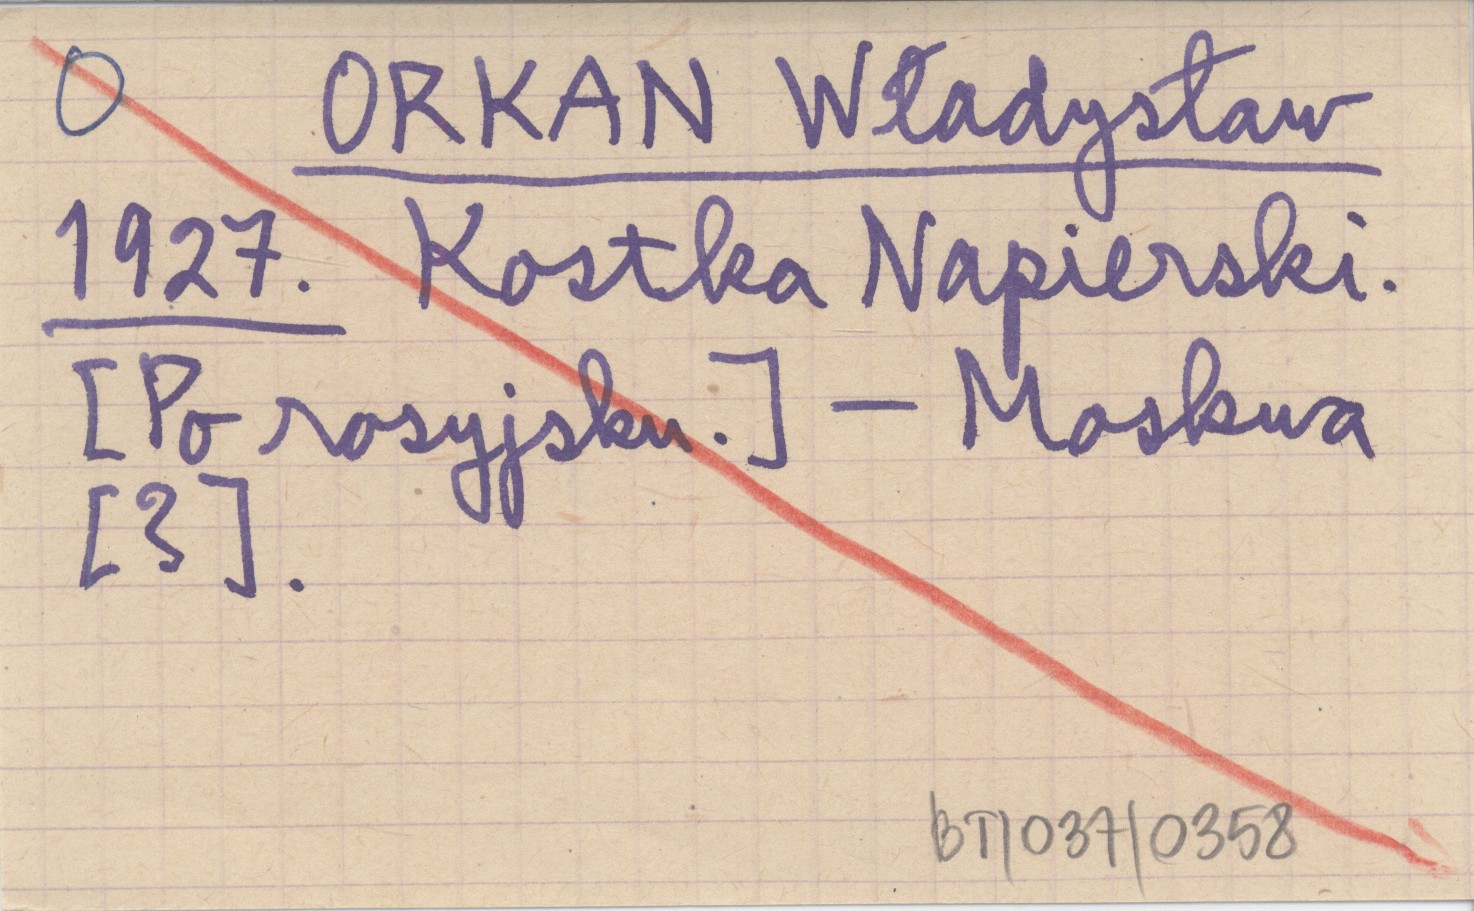 O ORKAN Władysław
1927. Kostka Napierski.
[Po rosyjsku.] — Moskwa
[3].
BT/037/0358